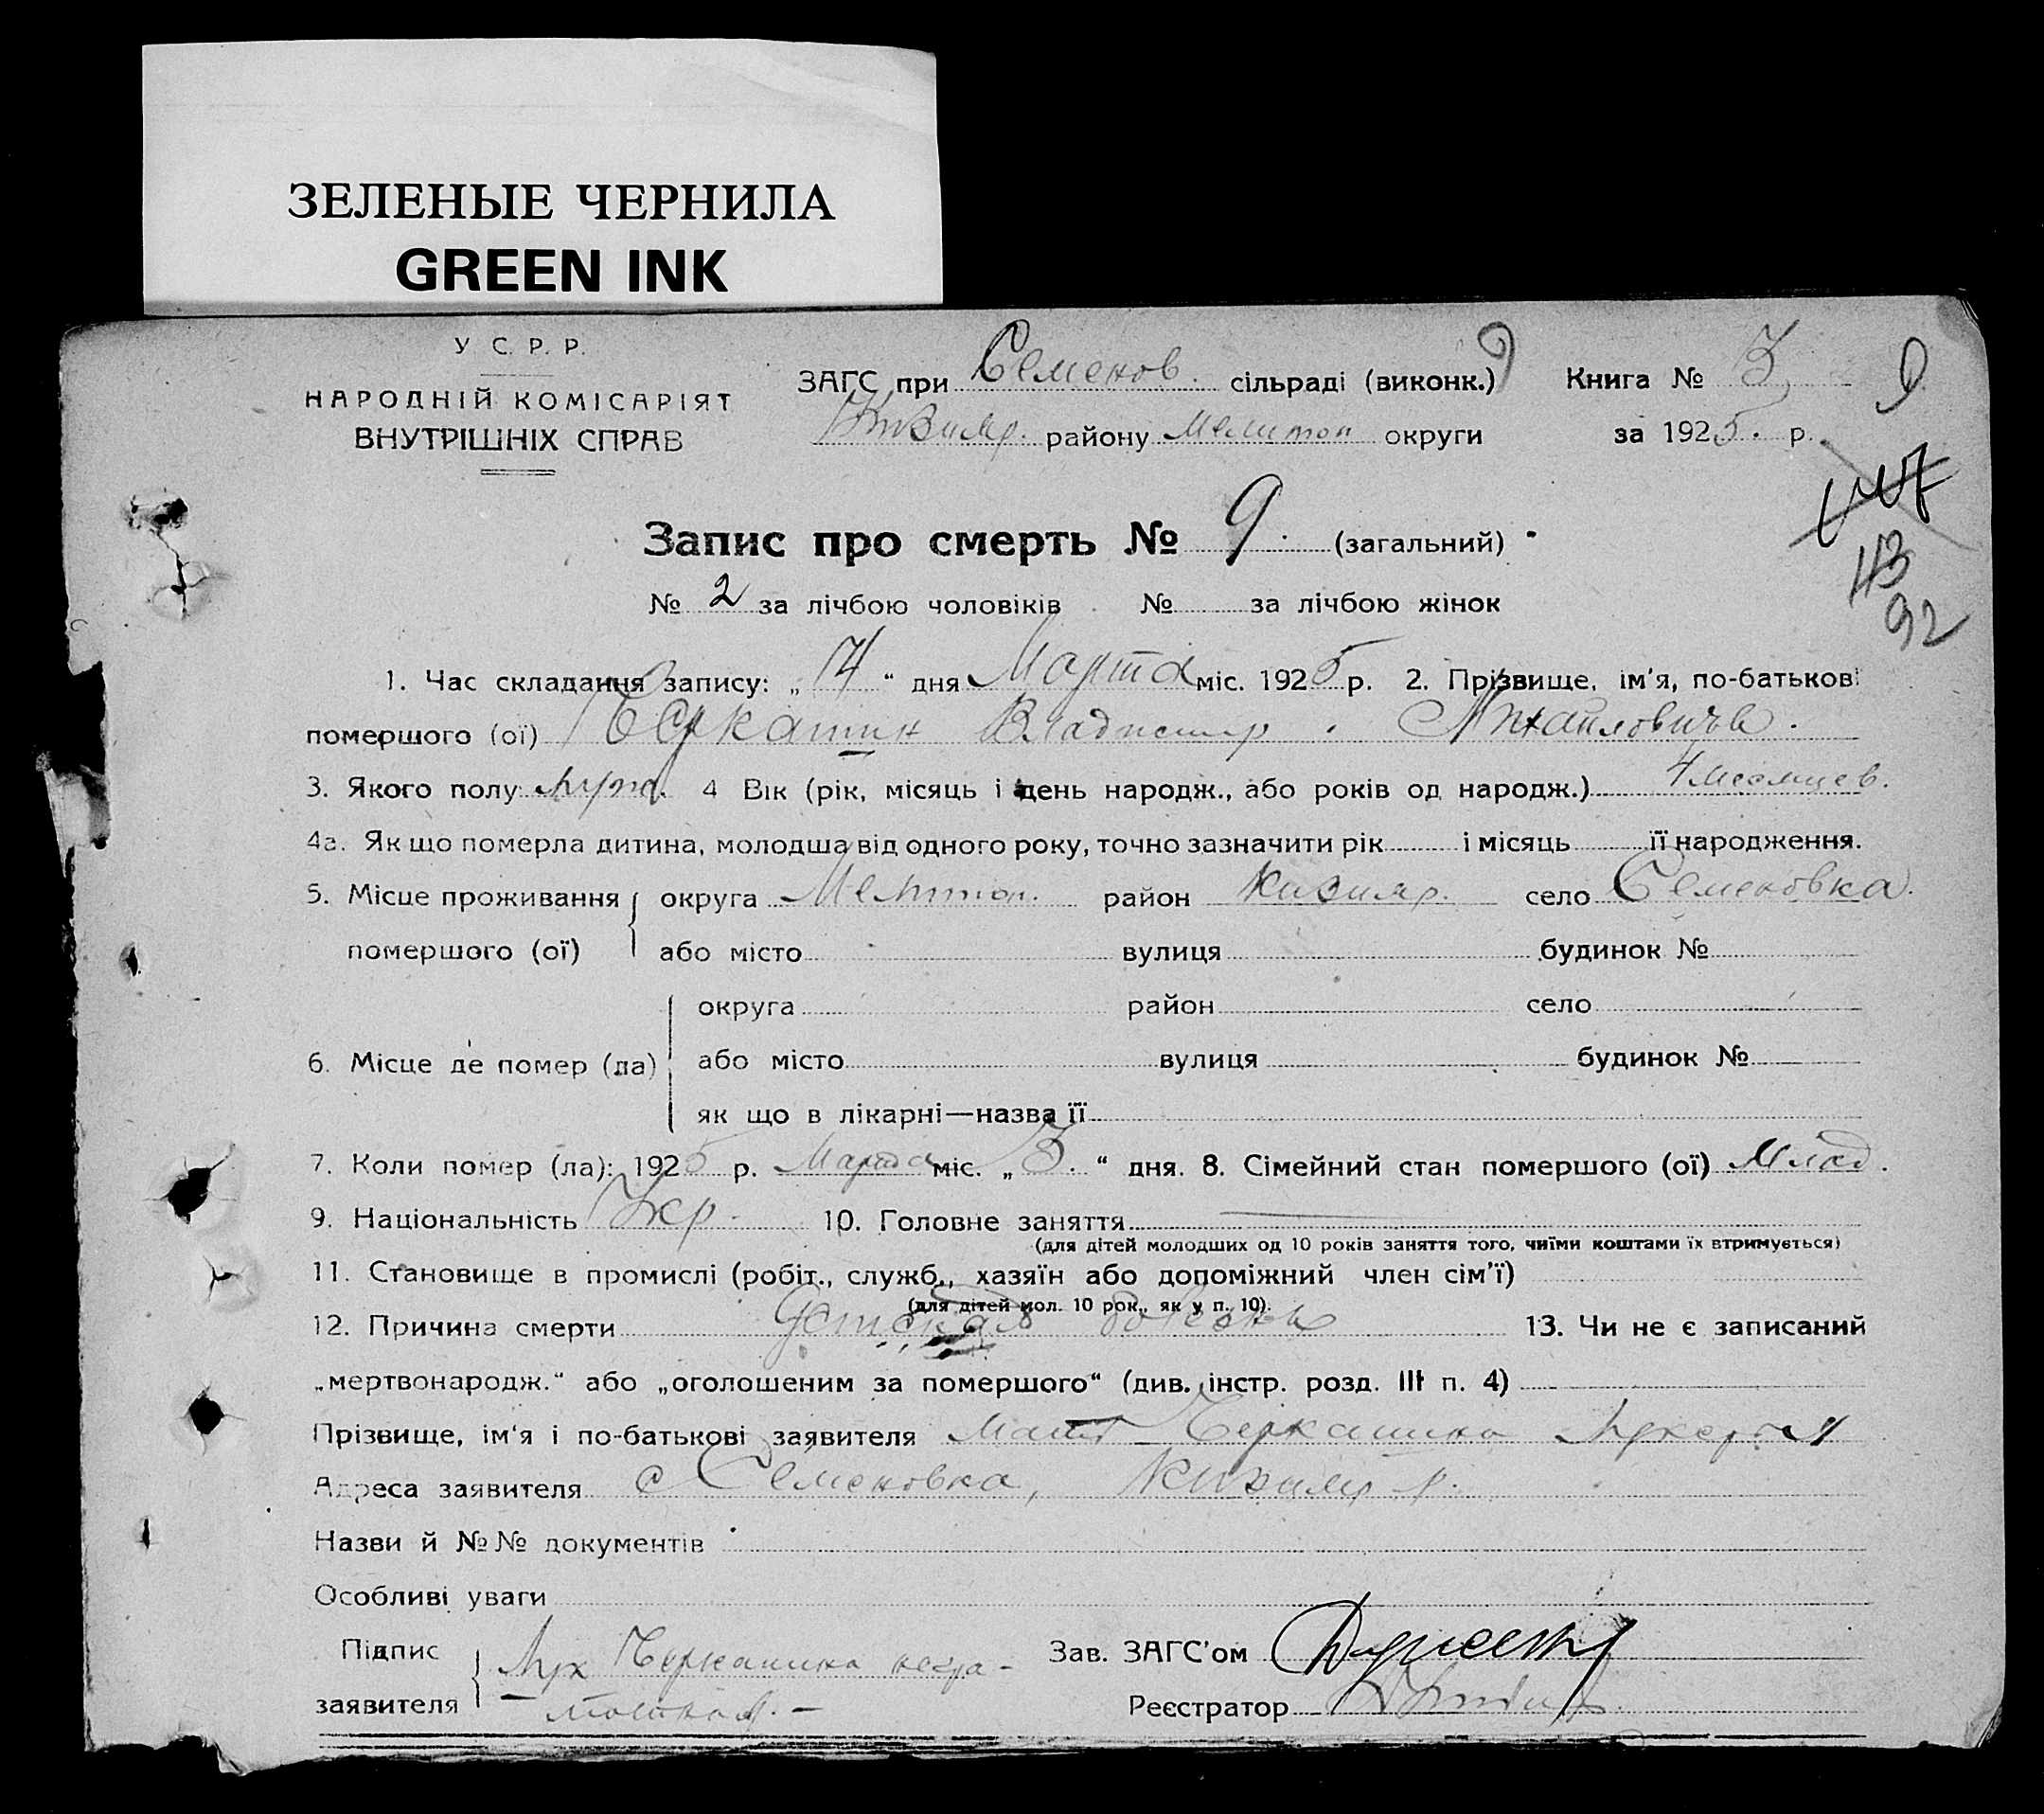 ЗЕЛЕНЫЕ ЧЕРНИЛА
GREEN INK
У С. Р. Р.
НАРОДНІЙ КОМІСАРІЯТ
ВНУТРІШНІХ СПРАВ
ЗАГС при Семенов. сільраді (виконк.) 9
Кизияр. району Мелитоп округи
Книга № 3
за 1925. р.
9
113
92
Запис про смерть № 9. (загальний)
№ 2 за лічбою чоловіків № за лічбою жінок
1. Час складання запису: „14“ дня Марта міс. 1925 р. 2. Прізвище, ім'я, по-батькові
помершого (ої) Черкашин Владимир Михайлович
3. Якого полу муж. 4 Вік (рік, місяць і день народж., або років од народж.) 4 месяцев.
4а. Як що померла дитина, молодша від одного року, точно зазначити рік і місяць її народження.
5. Місце проживання помершого (ої) округа Мелитоп. район Кизияр. село Семеновка.
або місто вулиця будинок №
округа район село
6. Місце де помер (ла) або місто вулиця будинок №
як що в лікарні—назва її
7. Коли помер (ла): 1925 р. Марта міс. „3.“ дня. 8. Сімейний стан помершого (ої) Млад.
9. Національність Укр. 10. Головне заняття
(для дітей молодших од 10 років заняття того, чиїми коштами їх втримується)
11. Становище в промислі (робіт., служб., хазяїн або допоміжний член сім'ї)
(для дітей мол. 10 рок., як у п. 10).
12. Причина смерти Детская болезнь 13. Чи не є записаний
„мертвонародж.“ або „оголошеним за помершого“ (див. інстр. розд. III п. 4)
Прізвище, ім'я і по-батькові заявителя Мать Черкашина Лукерья
Адреса заявителя с Семеновка, Кизияр р.
Назви й №№ документів
Особливі уваги
Підпис заявителя Лук Черкашина негра-
мотная. —
Зав. ЗАГС'ом
Реєстратор